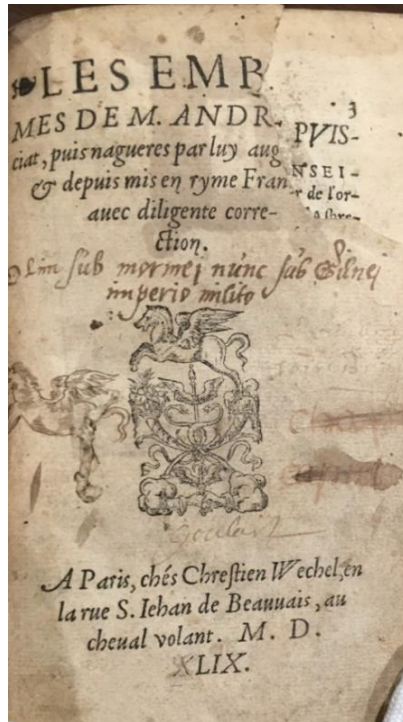 LES EMB
MES DE M. ANDR.
ciat, puis nagueres par luy aug
& depuis mis en ryme Fran
auec diligente corre-
ction.
3
PVIS-
NSEI-
r de l'or-
Olim sub mormei nunc sub
imperio milito
Goulart
A Paris, chés Chrestien Wechel, en
la rue S. Iehan de Beauuais, au
cheual volant. M. D.
XLIX.